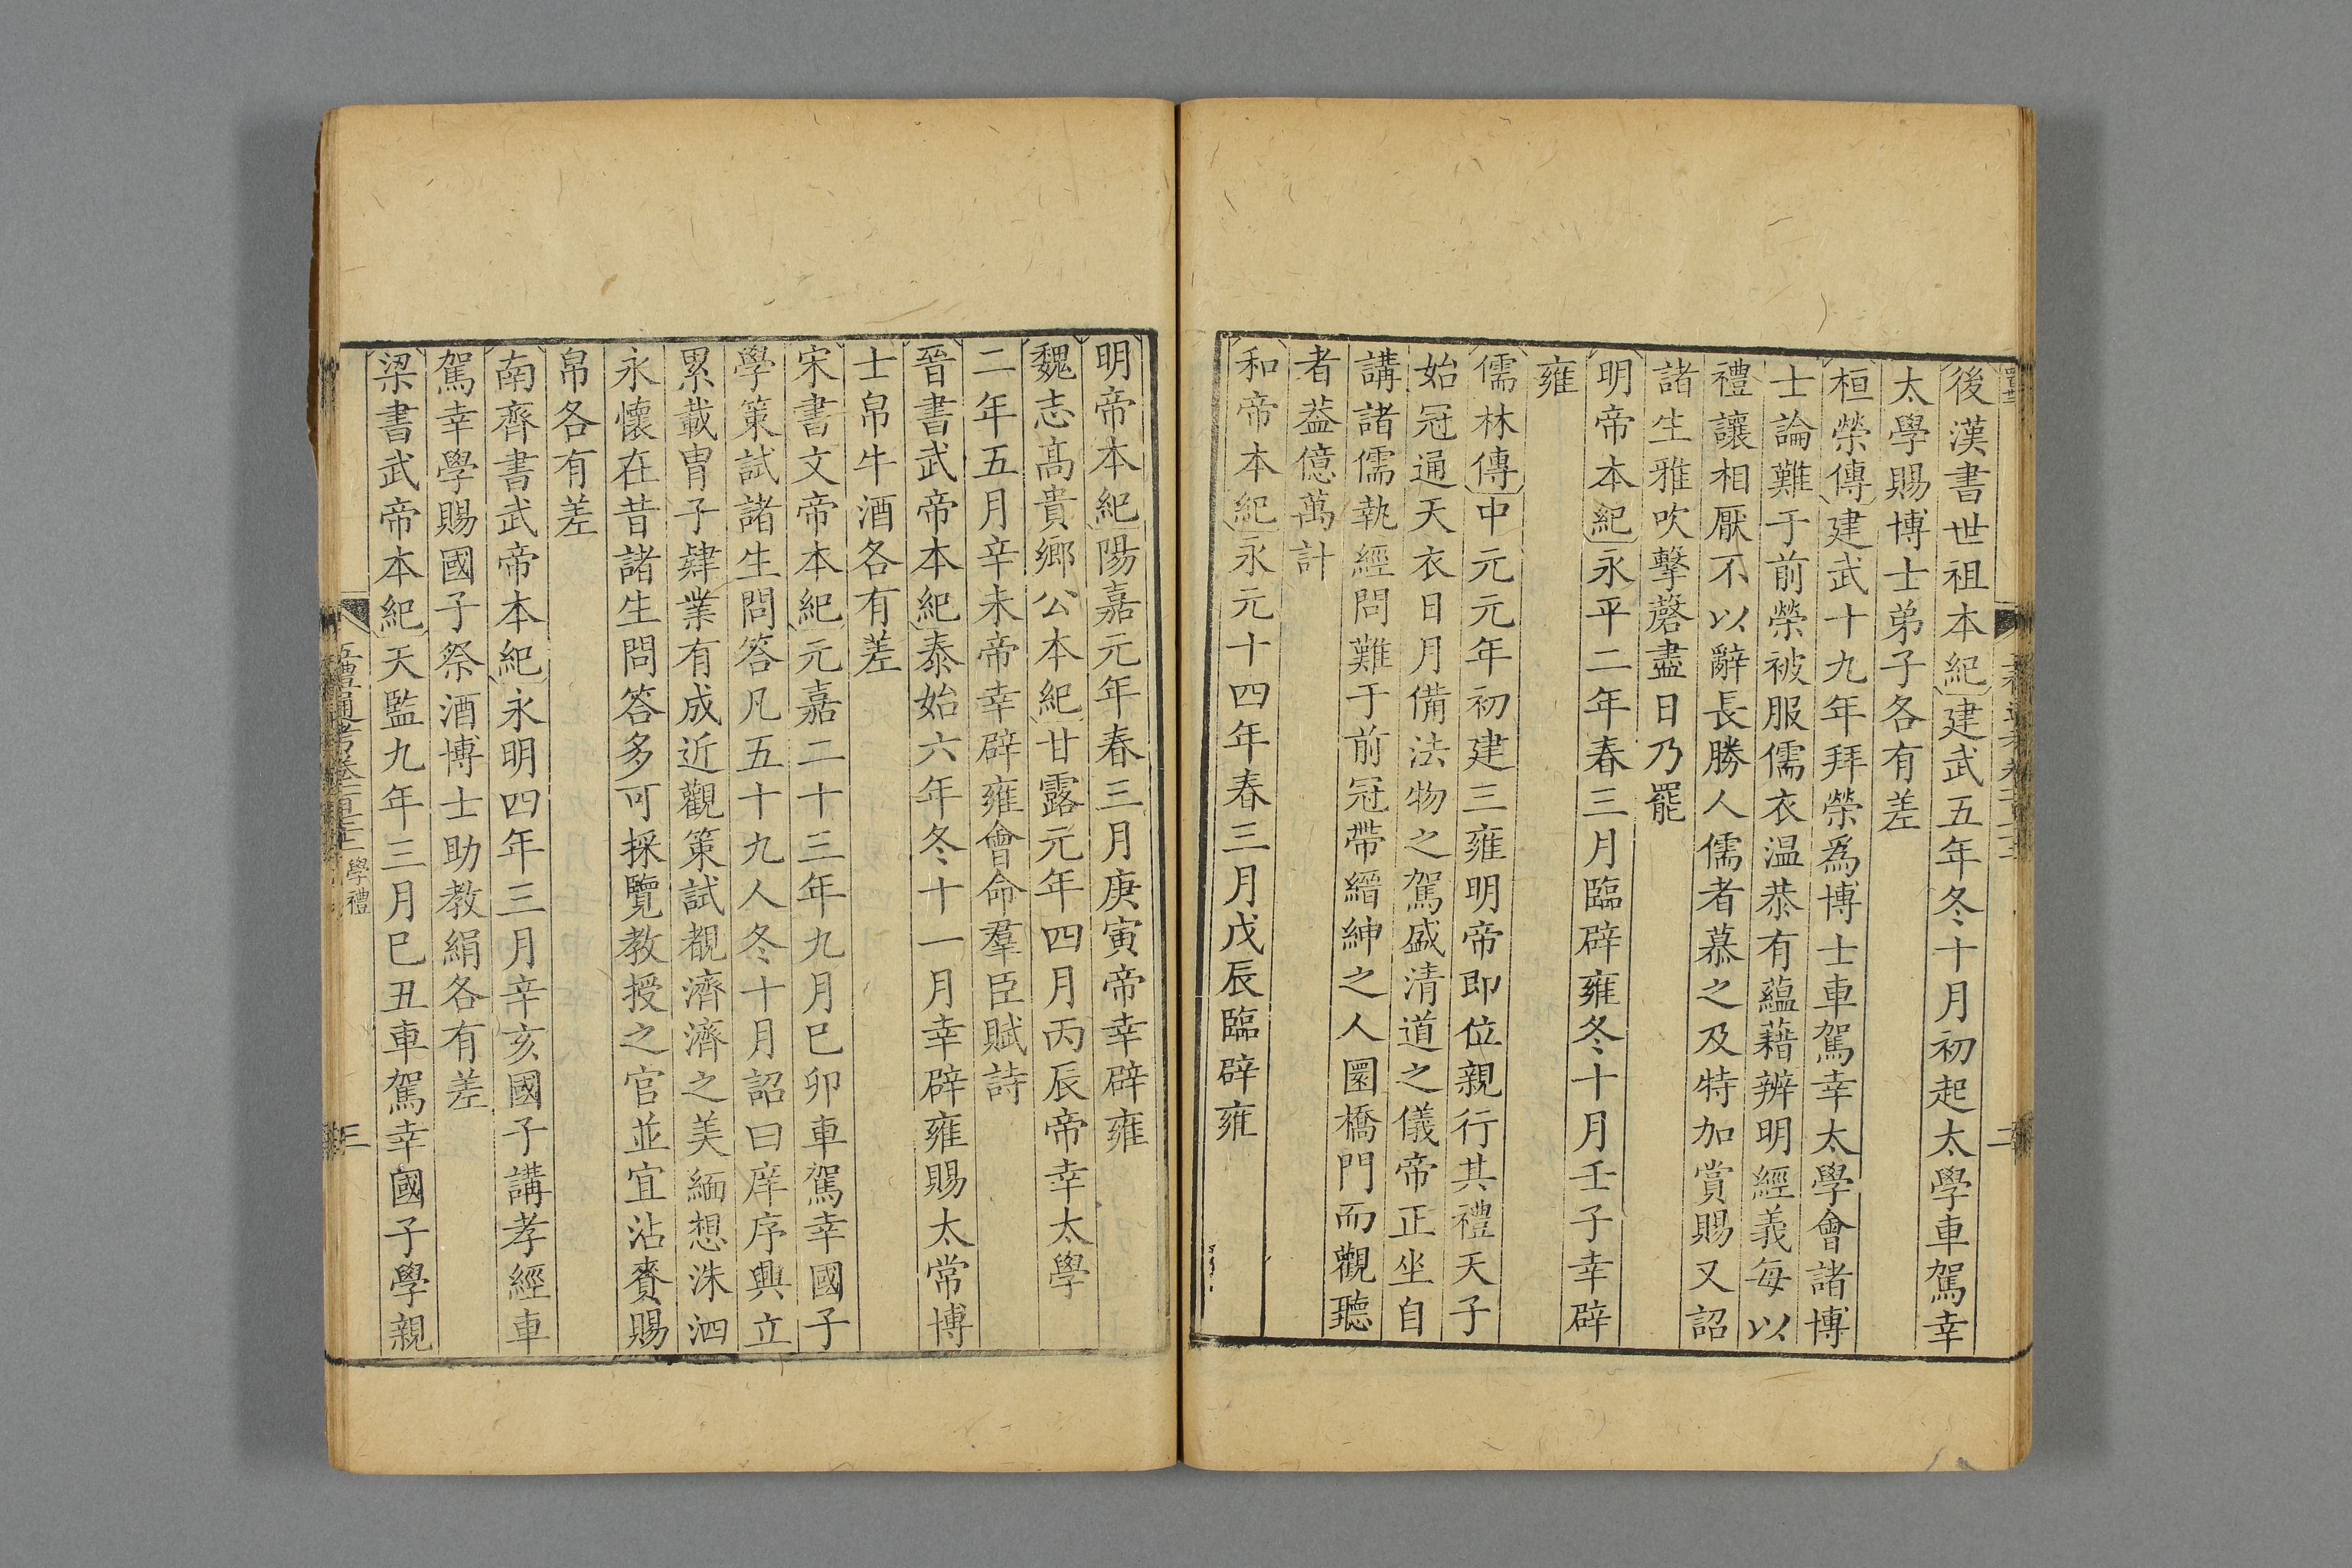 後漢書世祖本紀建武五年冬十月初起太學車駕幸
太學賜博士弟子各有差
桓榮傳建武十九年拜榮為博士車駕幸太學會諸博
士論難于前榮被服儒衣温恭有蘊藉辨明經義每以
禮讓相厭不以辭長勝人儒者慕之及特加賞賜又詔
諸生雅吹擊磬盡日乃罷
明帝本紀永平二年春三月臨辟雍冬十月壬子幸辟
雍
儒林傳中元元年初建三雍明帝即位親行其禮天子
始冠通天衣日月備法物之駕盛清道之儀帝正坐自
講諸儒執經問難于前冠帶縉紳之人圜橋門而觀聽
者葢億萬計
和帝本紀永元十四年春三月戊辰臨辟雍
明帝本紀陽嘉元年春三月庚寅帝幸辟雍
魏志高貴鄉公本紀甘露元年四月丙辰帝幸太學
二年五月辛未帝幸辟雍會命羣臣賦詩
晉書武帝本紀泰始六年冬十一月幸辟雍賜太常博
士帛牛酒各有差
宋書文帝本紀元嘉二十三年九月巳卯車駕幸國子
學策試諸生問答凡五十九人冬十月詔曰庠序興立
累載胄子肄業有成近觀策試覩濟濟之美緬想洙泗
永懷在昔諸生問答多可採覽教授之官並宜沾賚賜
帛各有差
南齊書武帝本紀永明四年三月辛亥國子講孝經車
駕幸學賜國子祭酒博士助教絹各有差
梁書武帝本紀天監九年三月巳丑車駕幸國子學親
學禮
三